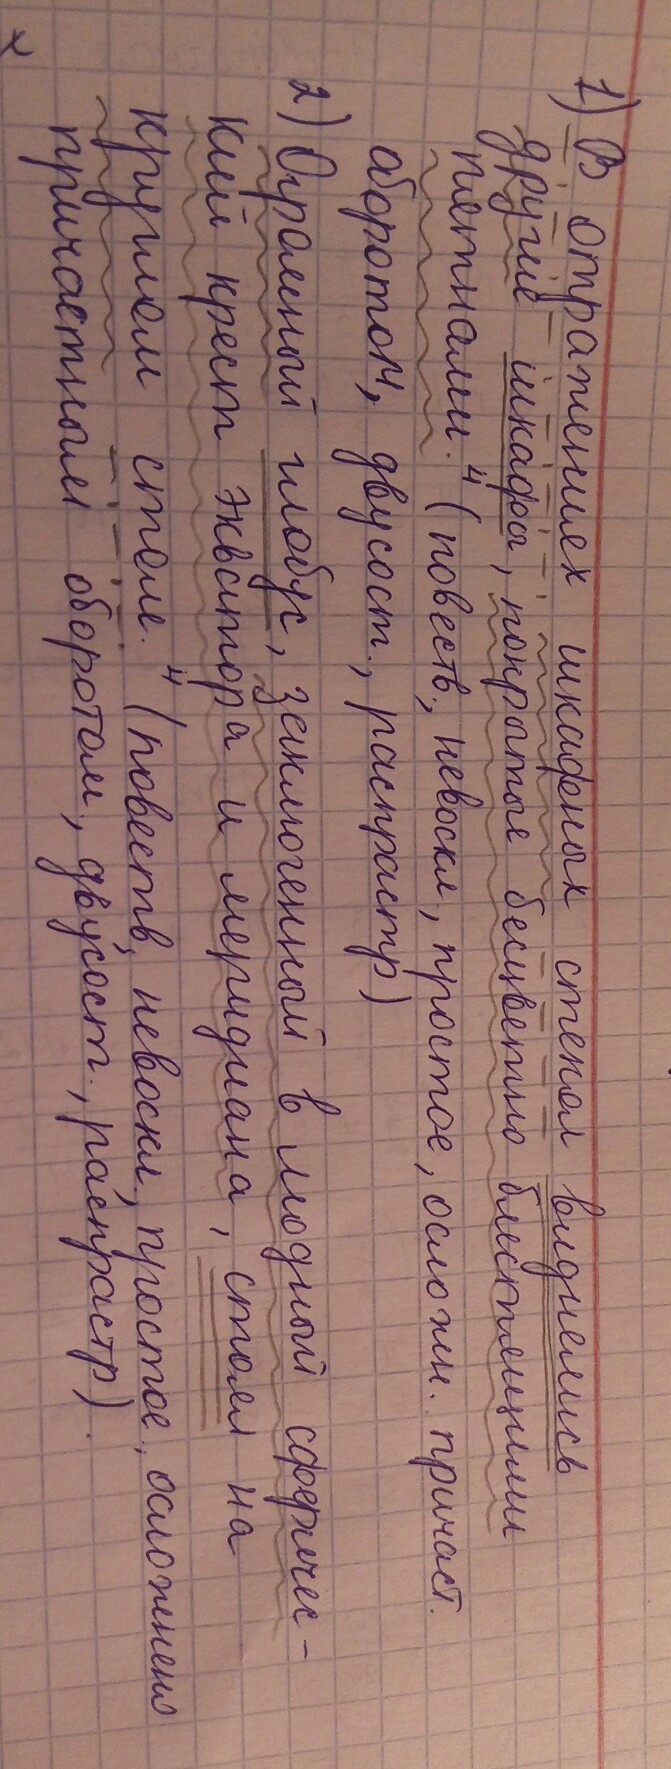 1) В отражениях шкафных стекол виднелись
другие шкафы, покрытые бесцветно блестящими
пятнами.⁴ (повеств., невоскл., простое, осложн. причаст.
оборотом, двусост., распрастр)
2) Огромный глобус, заключенный в людный сферичес-
кий крест экватора и меридиана, стоял на
круглом столе.⁴ (повеств, невоскл., простое, осложнено
причастным оборотом, двусост., распрастр).